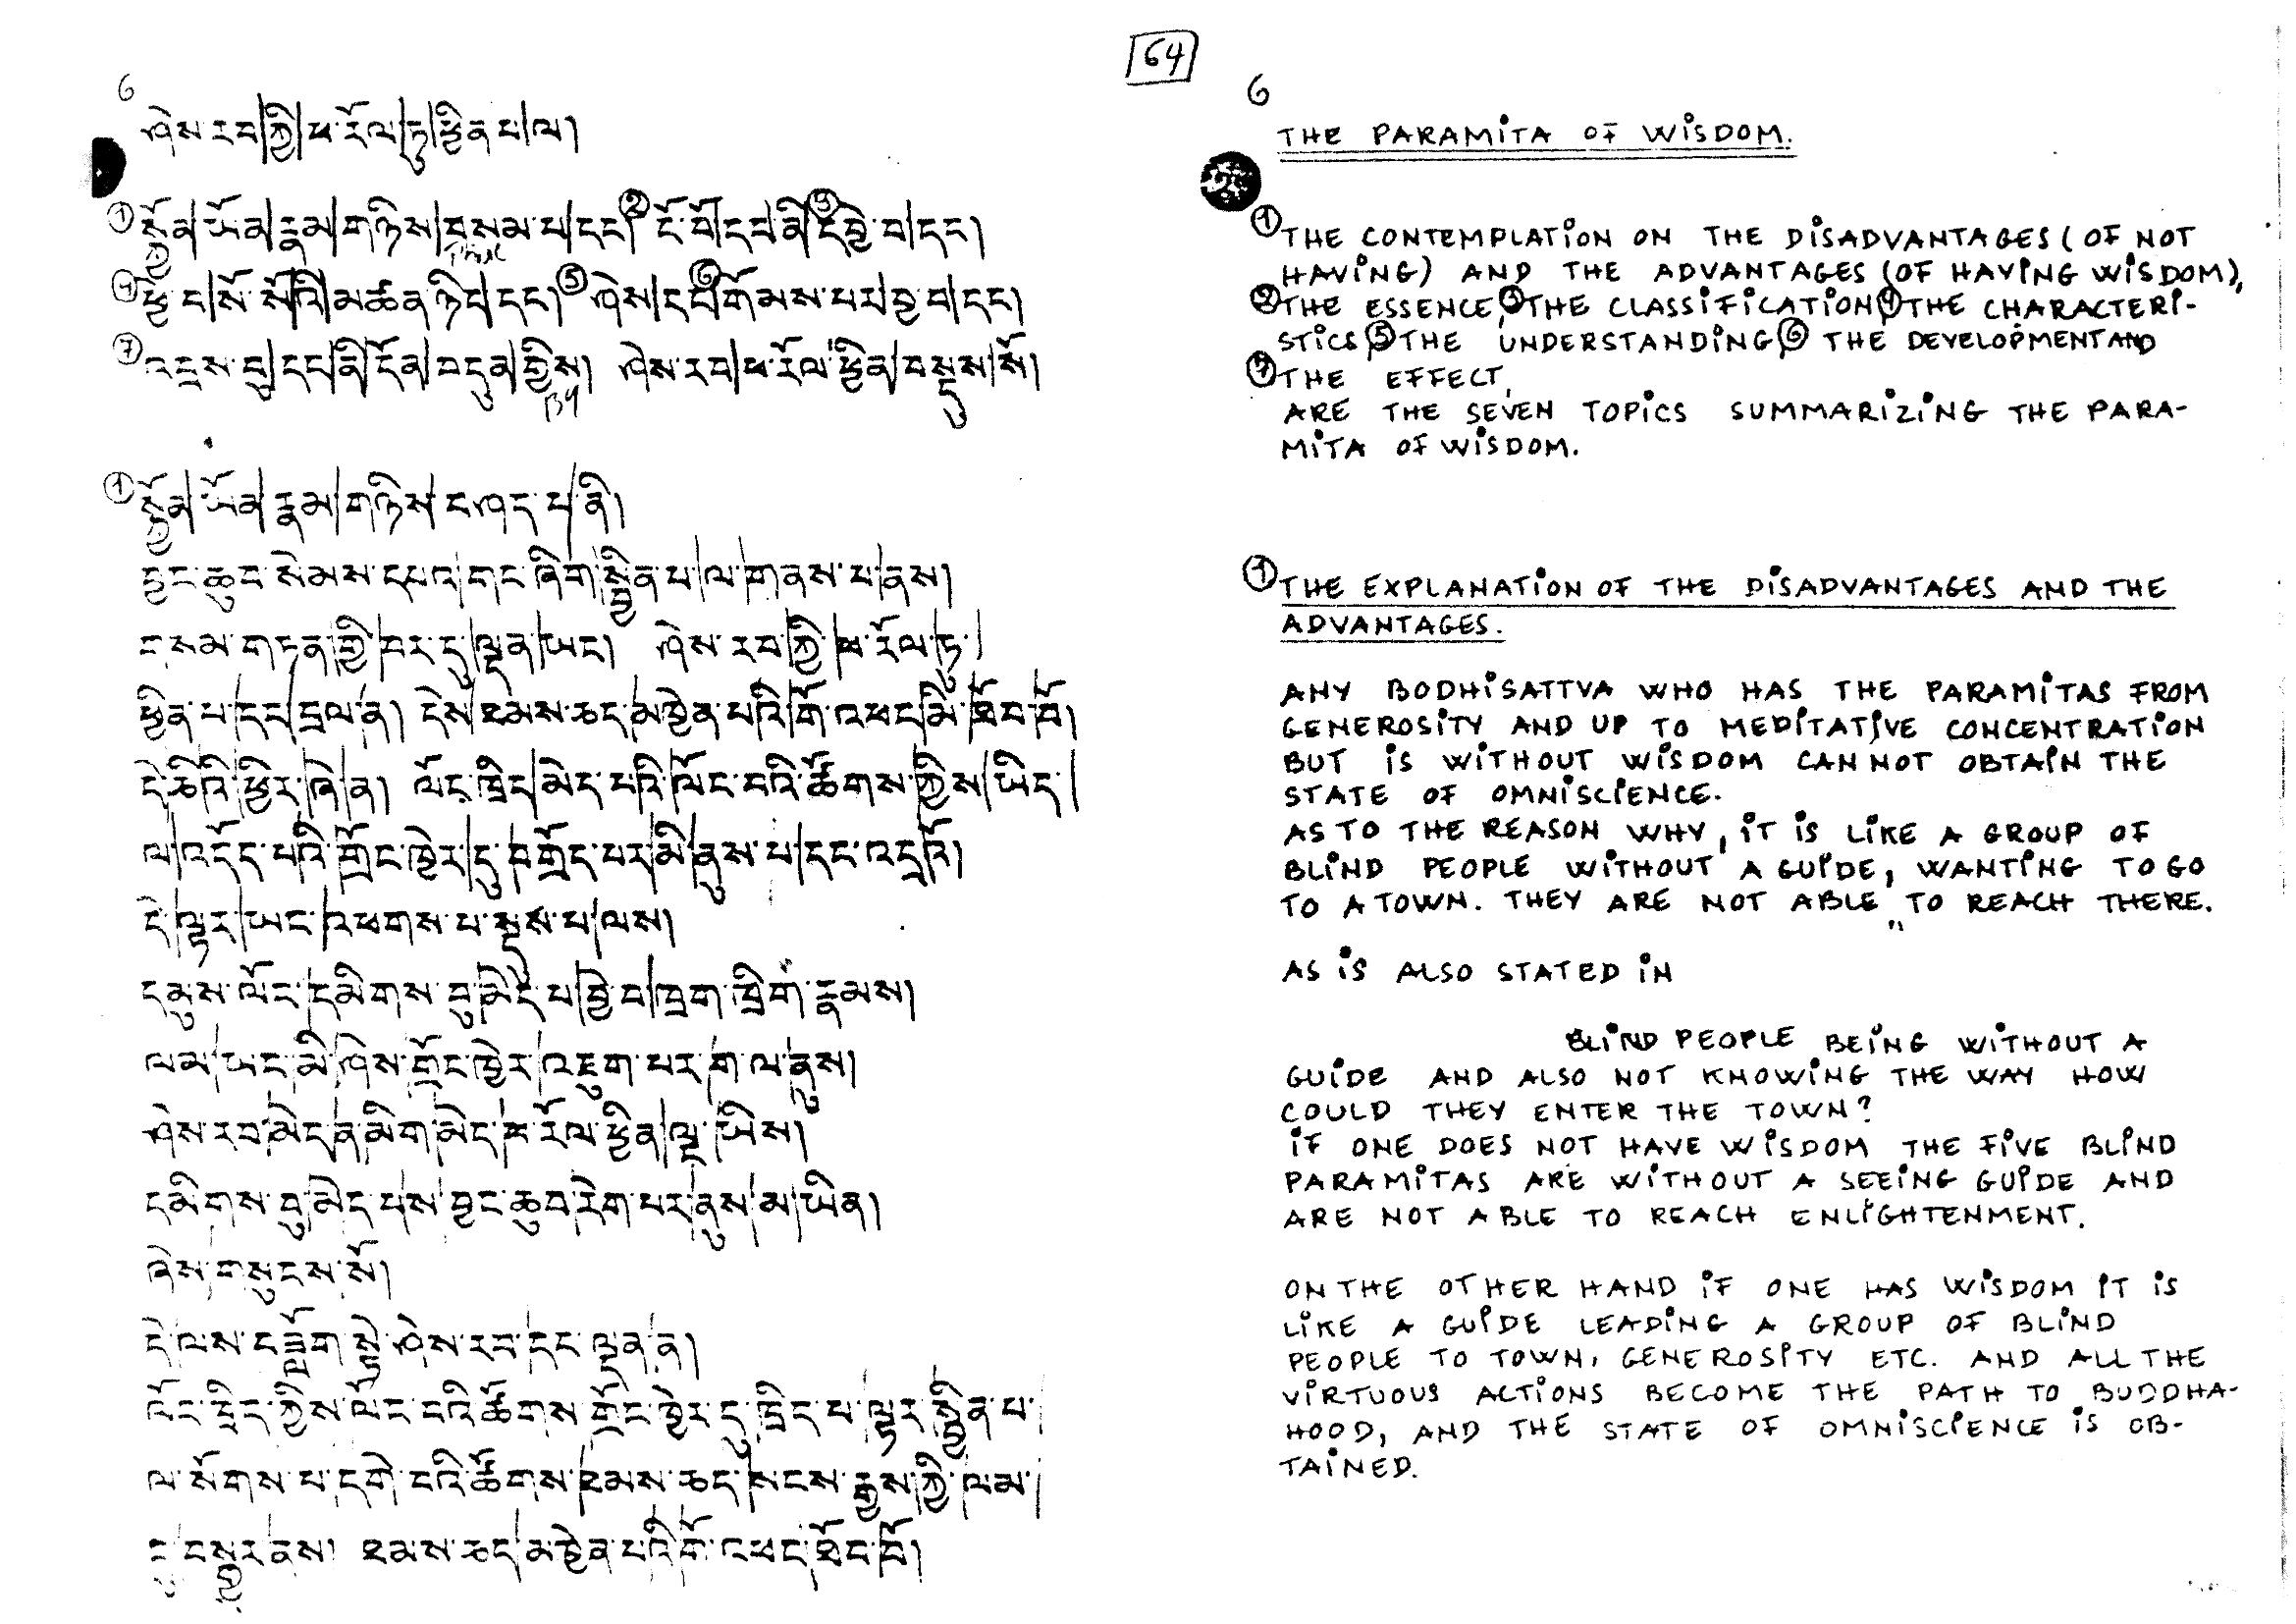 64
6
ཤེས་རབ་ཀྱི་ཕ་རོལ་ཏུ་ཕྱིན་པ་ལ།
① སྐྱོན་ཡོན་རྣམ་གཉིས་བསམ་པ་དང་② ངོ་བོ་དང་ནི་③ དབྱེ་བ་དང་།
④ ཕྱེ་བ་སོ་སོའི་མཚན་ཉིད་དང་། ⑤ ཤེས་དང་⑥ གོམས་པར་བྱ་བ་དང་།
⑦ འབྲས་བུ་དང་ནི་དོན་བདུན་གྱིས། ཤེས་རབ་ཕ་རོལ་ཕྱིན་བསྡུས་སོ།
by
① སྐྱོན་ཡོན་རྣམ་གཉིས་བཤད་པ་ནི།
བྱང་ཆུབ་སེམས་དཔའ་གང་ཞིག་སྦྱིན་པ་ལ་གནས་པ་ནས།
བསམ་གཏན་གྱི་བར་དུ་ལྡན་ཡང་། ཤེས་རབ་ཀྱི་ཕ་རོལ་ཏུ་
ཕྱིན་པ་དང་བྲལ་ན། དེས་ཐམས་ཅད་མཁྱེན་པའི་གོ་འཕང་མི་ཐོབ་བོ།
དེ་ཅིའི་ཕྱིར་ཞེ་ན། ལོང་ཁྲིད་མེད་པའི་ལོང་བའི་ཚོགས་ཀྱིས་ཡིད་
ལ་འདོད་པའི་གྲོང་ཁྱེར་དུ་བགྲོད་པར་མི་ནུས་པ་དང་འདྲའོ།
དེ་ལྟར་ཡང་འཕགས་པ་སྡུད་པ་ལས།
དམུས་ལོང་དམིགས་བུ་མེད་པ་བྱེ་བ་ཁྲག་ཁྲིག་རྣམས།
ལམ་ཡང་མི་ཤེས་གྲོང་ཁྱེར་འཇུག་པར་ག་ལ་ནུས།
ཤེས་རབ་མེད་ན་མིག་མེད་ཕ་རོལ་ཕྱིན་ལྔ་ཡིས།
དམིགས་བུ་མེད་པས་བྱང་ཆུབ་རེག་པར་ནུས་མ་ཡིན།
ཞེས་གསུངས་སོ།
དེ་ལས་བཟློག་སྟེ་ཤེས་རབ་དང་ལྡན་ན།
ལོང་ཁྲིད་ཀྱིས་ལོང་བའི་ཚོགས་གྲོང་ཁྱེར་དུ་ཁྲིད་པ་ལྟར་སྦྱིན་པ་
ལ་སོགས་པ་དགེ་བའི་ཚོགས་ཐམས་ཅད་སངས་རྒྱས་ཀྱི་ལམ་
དུ་བསྒྱུར་ནས། ཐམས་ཅད་མཁྱེན་པའི་གོ་འཕང་ཐོབ་བོ།
6
THE PARAMITA OF WISDOM.
① THE CONTEMPLATION ON THE DISADVANTAGES (OF NOT
HAVING) AND THE ADVANTAGES (OF HAVING WISDOM),
② THE ESSENCE, ③ THE CLASSIFICATION, ④ THE CHARACTERI-
STICS, ⑤ THE UNDERSTANDING, ⑥ THE DEVELOPMENT AND
⑦ THE EFFECT,
ARE THE SEVEN TOPICS SUMMARIZING THE PARA-
MITA OF WISDOM.
① THE EXPLANATION OF THE DISADVANTAGES AND THE
ADVANTAGES.
ANY BODHISATTVA WHO HAS THE PARAMITAS FROM
GENEROSITY AND UP TO MEDITATIVE CONCENTRATION
BUT IS WITHOUT WISDOM CANNOT OBTAIN THE
STATE OF OMNISCIENCE.
AS TO THE REASON WHY, IT IS LIKE A GROUP OF
BLIND PEOPLE WITHOUT A GUIDE, WANTING TO GO
TO A TOWN. THEY ARE NOT ABLE TO REACH THERE.
AS IS ALSO STATED IN
BLIND PEOPLE BEING WITHOUT A
GUIDE AND ALSO NOT KNOWING THE WAY HOW
COULD THEY ENTER THE TOWN?
IF ONE DOES NOT HAVE WISDOM THE FIVE BLIND
PARAMITAS ARE WITHOUT A SEEING GUIDE AND
ARE NOT ABLE TO REACH ENLIGHTENMENT.
ON THE OTHER HAND IF ONE HAS WISDOM IT IS
LIKE A GUIDE LEADING A GROUP OF BLIND
PEOPLE TO TOWN, GENEROSITY ETC. AND ALL THE
VIRTUOUS ACTIONS BECOME THE PATH TO BUDDHA-
HOOD, AND THE STATE OF OMNISCIENCE IS OB-
TAINED.